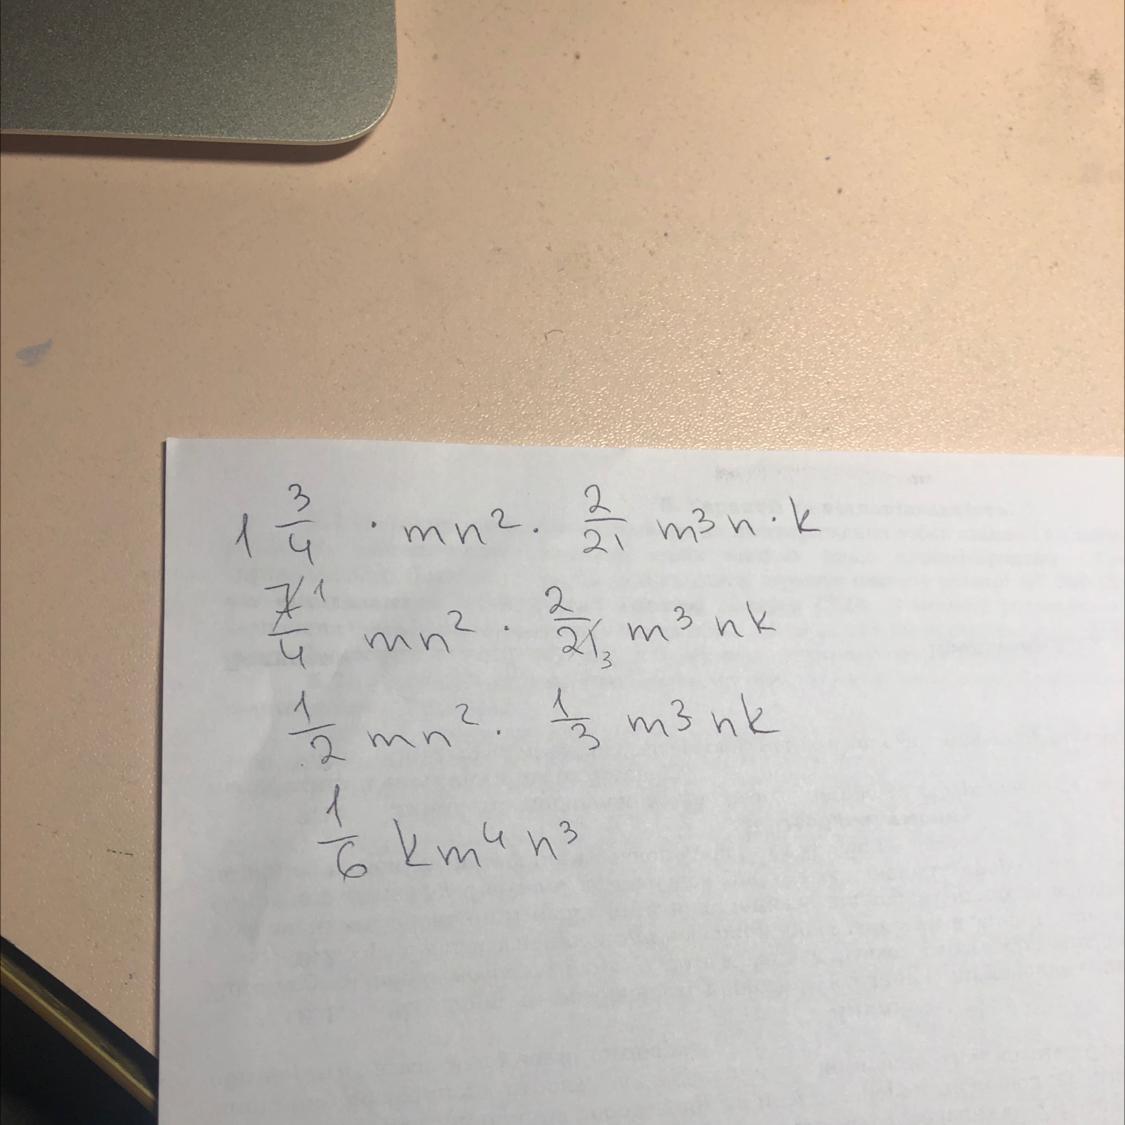 1 3/4 · mn² · 2/21 m³n·k
7̸ 1/4 mn² · 2/2̸1̸ 3 m³nk
1/2 mn² · 1/3 m³nk
1/6 km⁴n³